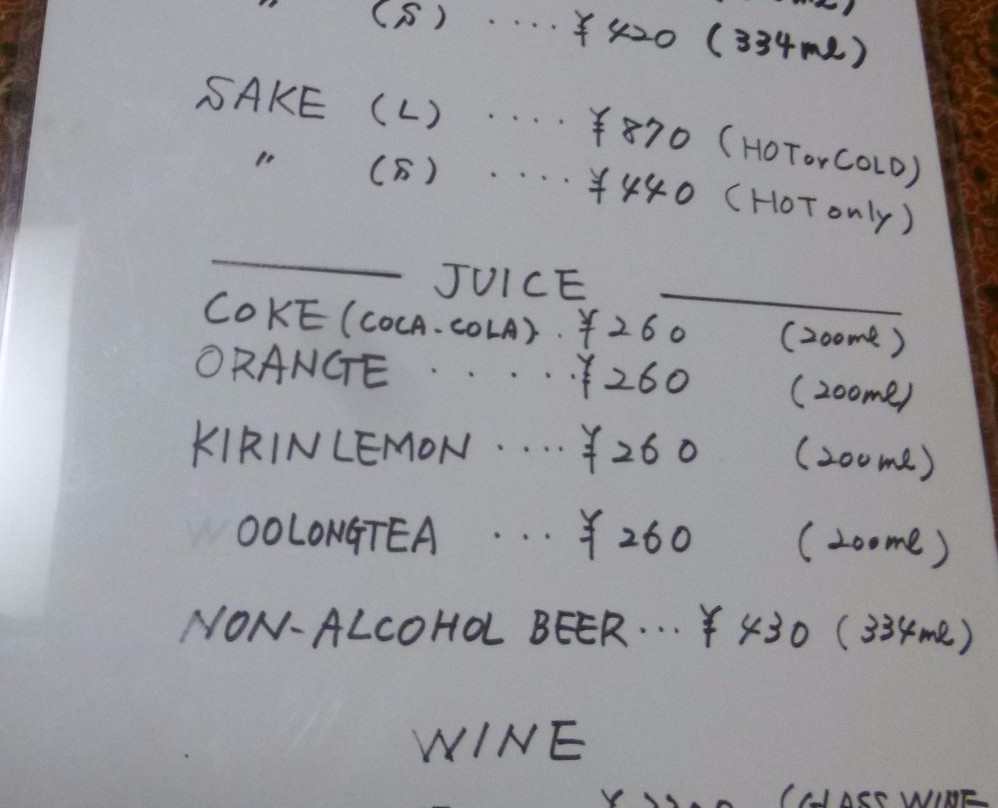 〃 (S) ....¥420 (334ml)
SAKE (L) ....¥870 (HOT or COLD)
〃 (S) ....¥440 (HOT only)
JUICE
COKE (COCA-COLA).¥260 (200ml)
ORANGE ......¥260 (200ml)
KIRIN LEMON ....¥260 (200ml)
OOLONGTEA ...¥260 (200ml)
NON-ALCOHOL BEER...¥430 (334ml)
WINE
(GLASS WINE